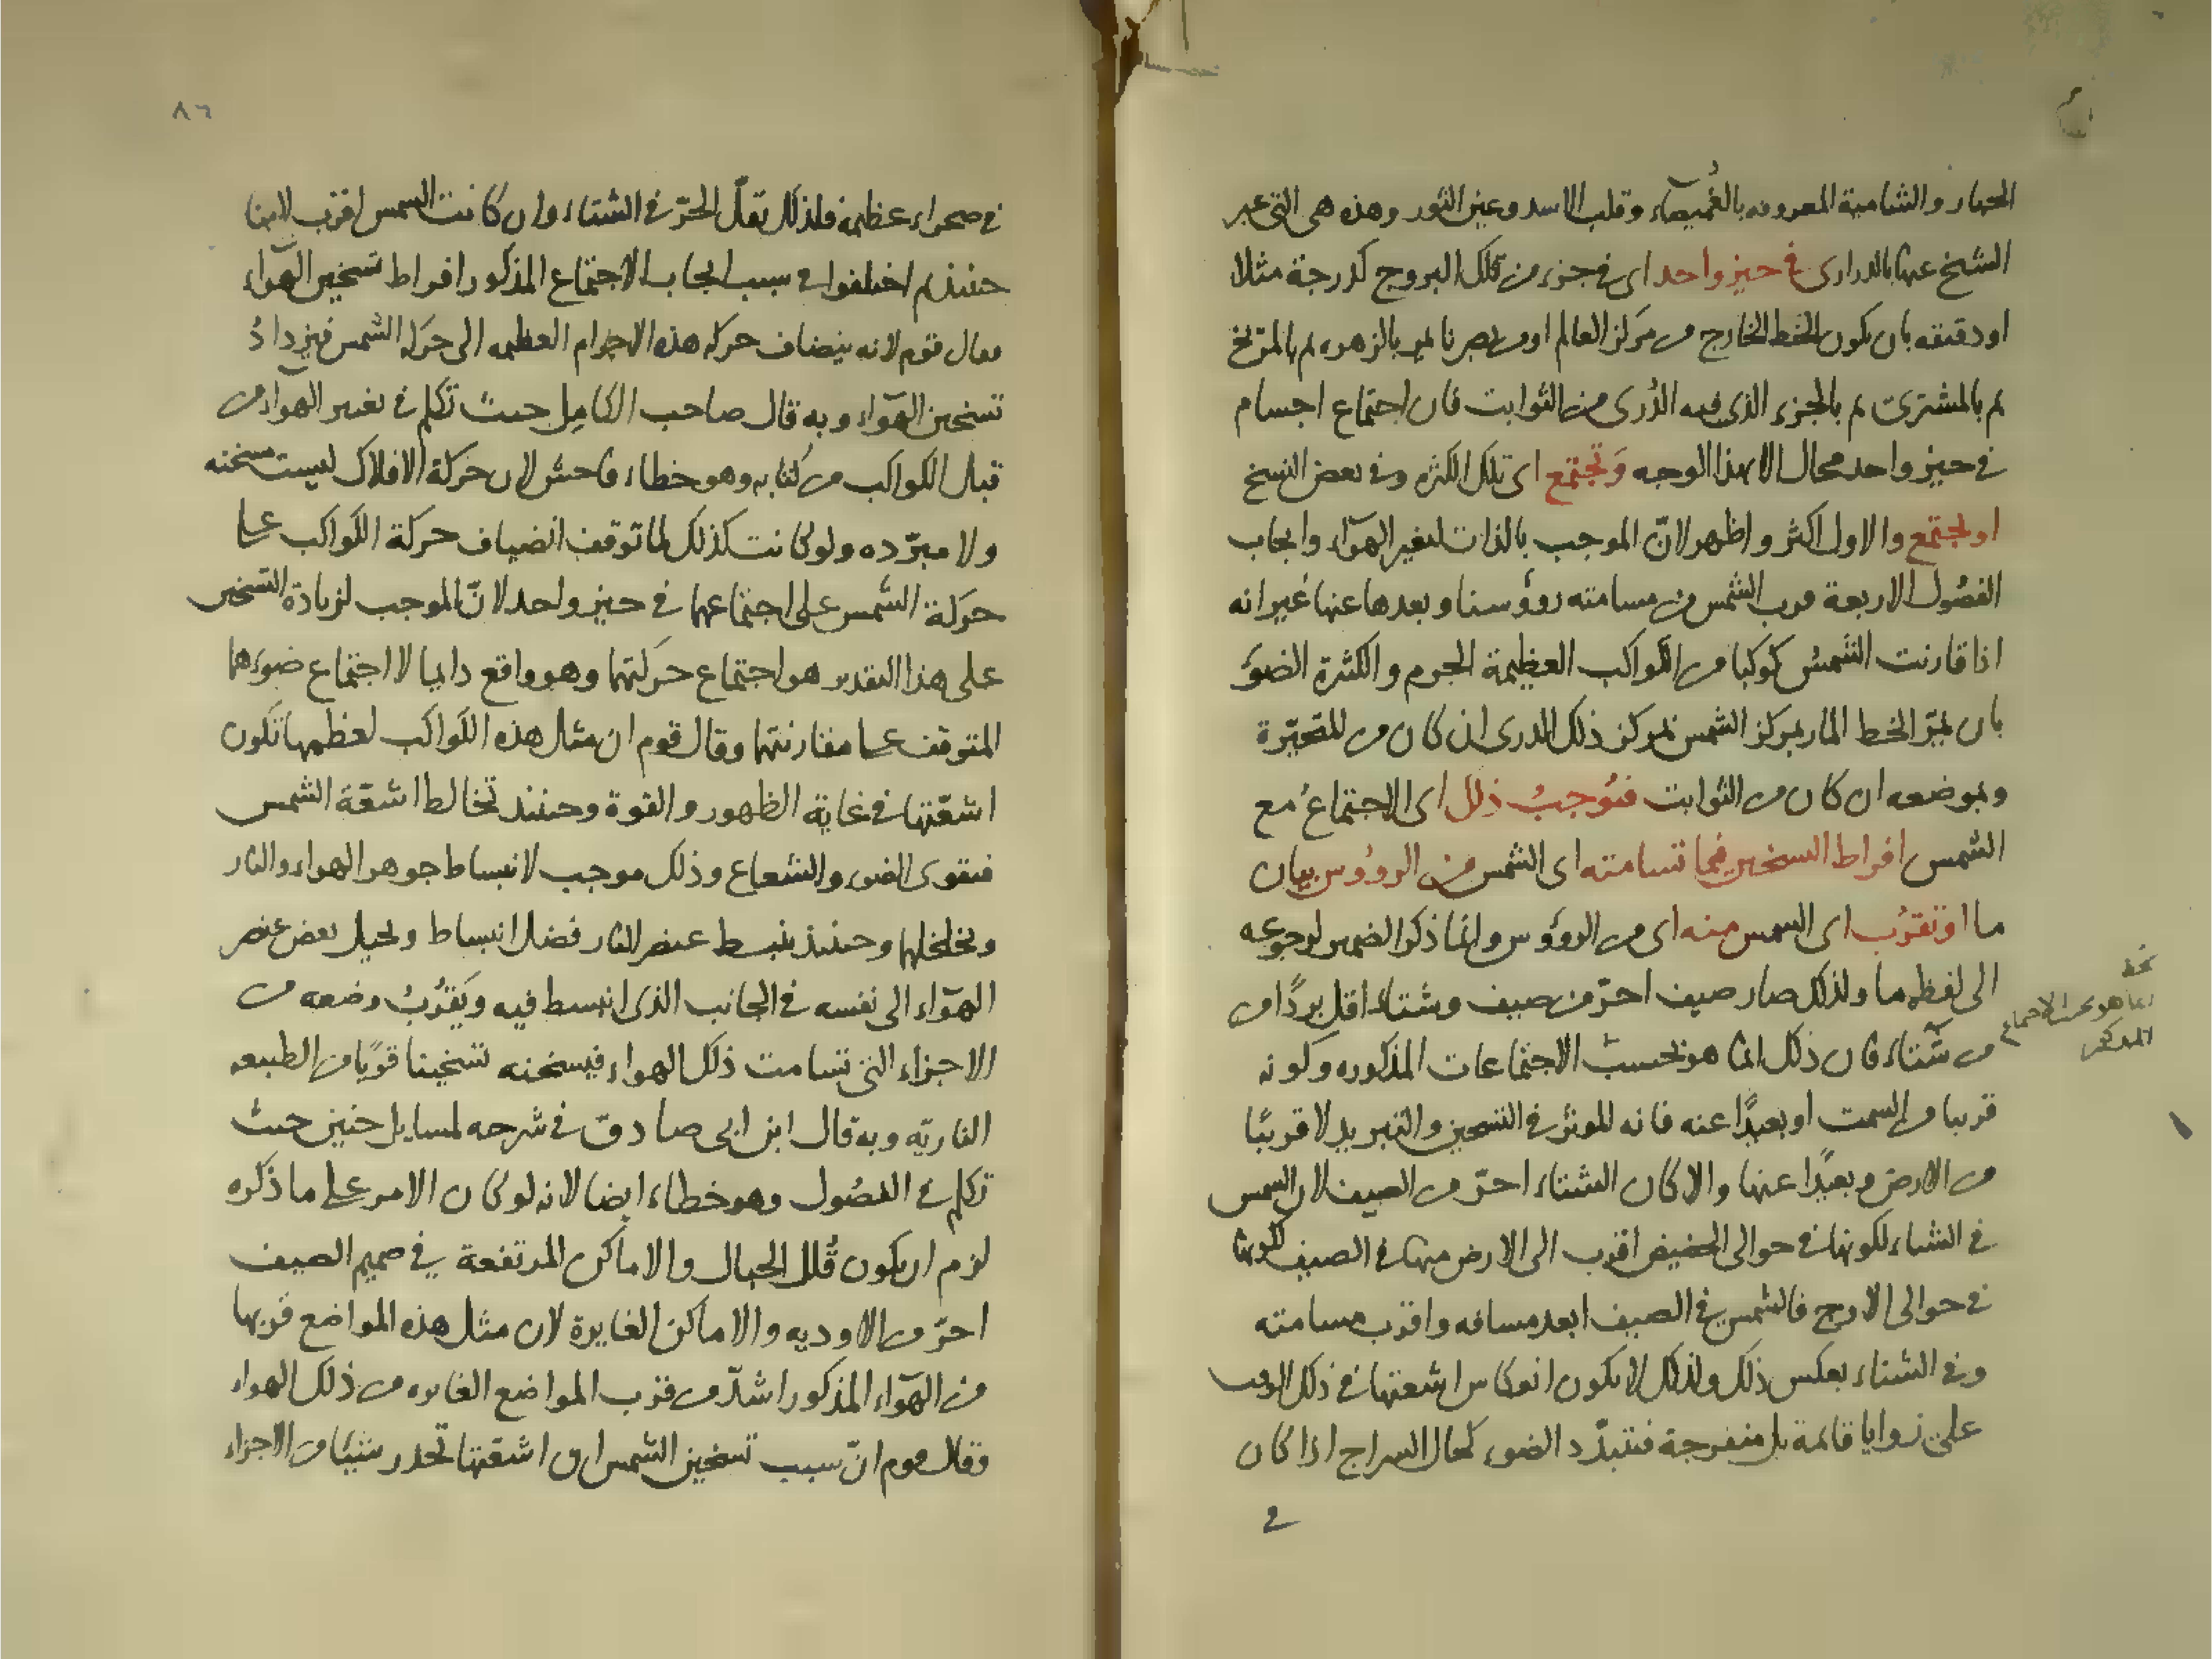 الجبار والشامية المعروفه بالغُميصآء وقلب الاسد وعين الثور وهذه هى التى عبر
الشيخ عنها بالدرارى فى حيز واحد اى فى جزء من فلك البروج كدرجة مثلا
او دقيقه بان يكون الخط الخارج من مركز العالم او من بصرنا يمر بالزهره ثم بالمريخ
ثم بالمشترى ثم بالجزء الذى فيه الدُرى من الثوابت فان اجتماع اجسام
فى حيز واحد محال الا بهذا الوجه وَتجتمع اى تلك الكثره وفى بعض النسخ
او يجتمع والاول اكثر واظهر لانّ الموجب بالذات لتغير الهوآء وايجاب
الفصُول الاربعة قرب الشمس من مسامته رووسنا وبعدها عنها غير انه
اذا قارنت الشمسُ كوكبا من الكواكب العظيمة الجرم والكثيرة الضوَ
بان يمرّ الخط المار بمركز الشمس بمركز ذلك الدرى ان كان من المتحيّرة
وبموضعه ان كان من الثوابت فتُوجبُ ذلك اى الاجتماعُ مع
الشمس افراط التسخين فيما تسامته اى الشمس من الروُوس بيان
ما او تقرُب اى الشمس منه اى من الروُوس وانما ذكر الضمير لرجوعه
الى لفظه ما ولذلك صار صيف احرّ من صيف وشتاء اقل بردًا من
من شتآء فان ذلك انما هو بحسب الاجتماعات المذكوره وكونه
قريبا من السمت او بعيدًا عنه فانه الموثر فى التسخين والتبريد لا قريبًا
من الارض وبعيدًا عنها والا كان الشتاء احرّ من الصيف لان الشمس
فى الشتاء لكونها فى حوالى الحضيض اقرب الى الارض منها فى الصيف لكونها
فى حوالى الاوج فالشمس فى الصيف ابعد مسافه واقرب مسامته
وفى الشتاء بعكس ذلك ولذلك لا يكون انعكاس اشعتها فى ذلك الوقت
على زوايا قائمة بل منفرجة فتبدّد الضوء كحال السراج اذا كان
فى
انما هو بحسب الاجتماع
المذكور
٨٦
فى صحراء عظيمه فلذلك يقلّ الحرّ فى الشتاء وان كانت الشمس اقرب الينا
حينئذ ثم اختلفوا فى سبب ايجاب الاجتماع المذكور افراط تسخين الهوآء
فقال قوم لانه ينضاف حركه هذه الاجرام العظيمه الى حركة الشمس فيزدادُ
تسخين الهوآء وبه قال صاحب الكامل حيث تكلم فى تغير الهوآء من
قبل الكواكب من كتابه وهو خطاء فاحش لان حركة الافلاك ليست مسخنه
ولا مبرّده ولو كانت كذلك لما توقف انضياف حركة الكواكب على
حركة الشمس على اجتماعهما فى حيز واحد لانّ الموجب لزيادة التسخين
على هذا التقدير هو اجتماع حركتهما وهو واقع دايما لا اجتماع ضوءهما
المتوقف على مقارنتهما وقال قوم ان مثل هذه الكواكب لعظمها تكون
اشعّتها فى غاية الظهور والقوة وحينئذ تخالط اشعّة الشمس
فيقوى الضوء والشعاع وذلك موجب لانبساط جوهر الهواء والنار
وتخلخلها وحينئذ ينبسط عنصر النار فضل انبساط ويحيل بعض عنصر
الهوآء الى نفسه فى الجانب الذى انبسط فيه ويَقرُبُ وضعه من
الاجزاء التى تسامت ذلك الهواء فيسخنه تسخينا قويًا من الطبيعه
الناريّه وبه قال ابن ابى صادق فى شرحه لمسايل حنين حيث
تكلم فى الفصُول وهو خطاء ايضا لانه لو كان الامر على ما ذكره
لزم ان يكون قُلل الجبال والاماكن المرتفعة فى صميم الصيف
احرّ من الاوديه والاماكن الغايرة لان مثل هذه المواضع قربها
من الهوآء المذكور اشدّ من قرب المواضع الغايره من ذلك الهواء
وقال قوم انّ سبب تسخين الشمس ان اشعّتها تحدر شيئا من الاجزاء